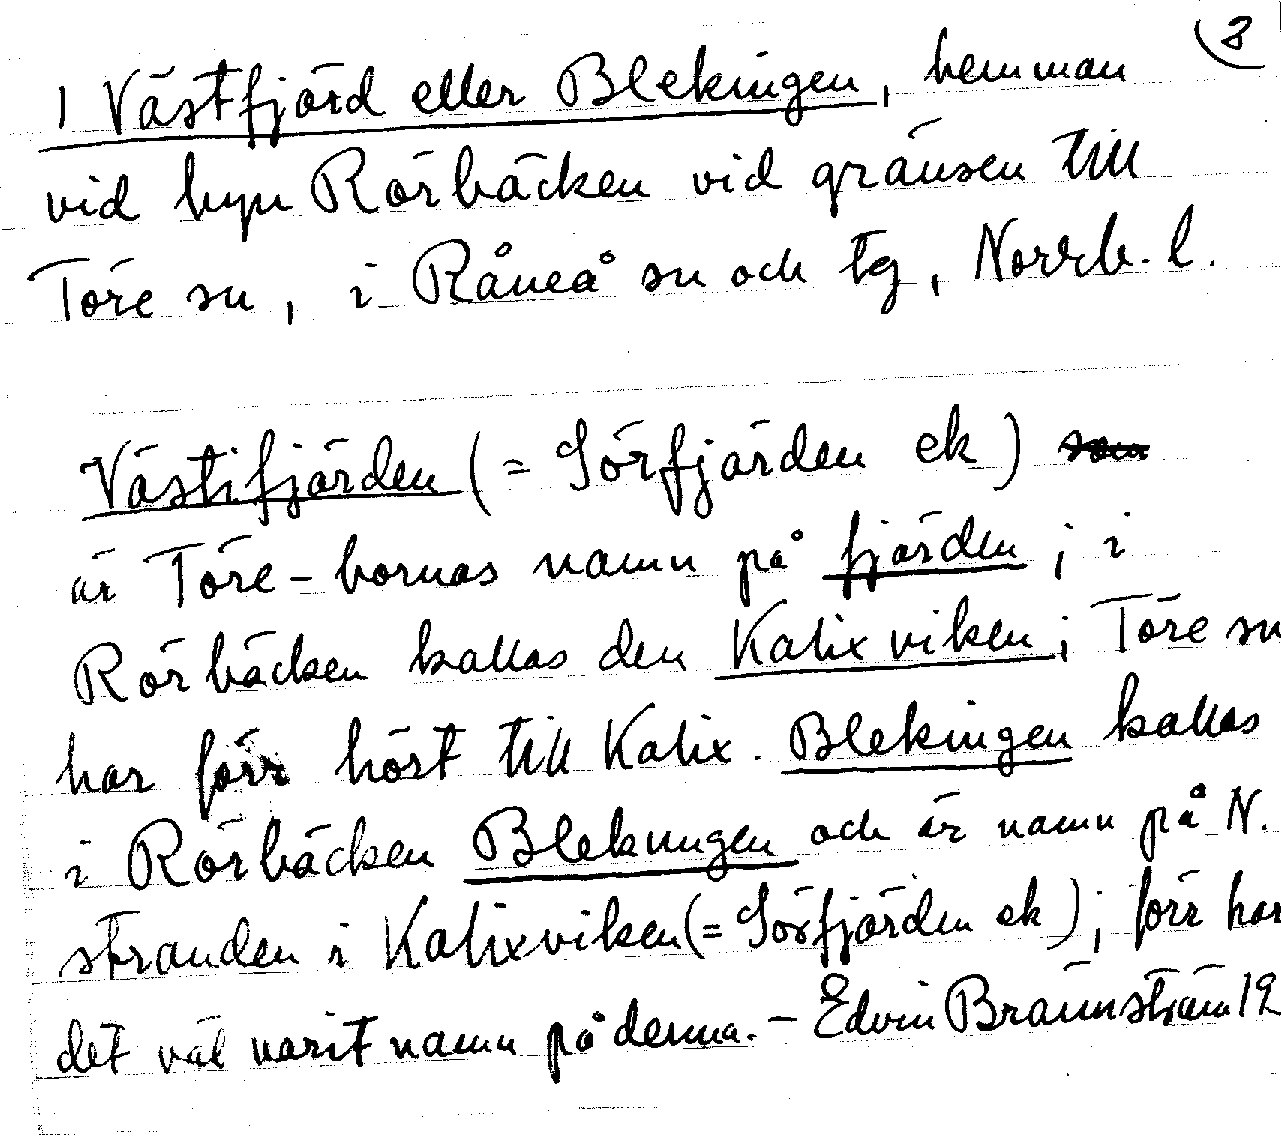 8
1 Västfjärd eller Blekingen, hemman
vid byn Rörbäcken vid gränsen till
Töre sn, i Råneå sn och tg, Norrb. l.
Västifjärden (= Sörfjärden ek) som
är Töre-bornas namn på fjärden; i
Rörbäcken kallas den Kalixviken; Töre sn
har förr hört till Kalix. Blekingen kallas
i Rörbäcken Blekungen och är namn på N.
stranden i Kalixviken (= Sörfjärden ek); förr har
det väl varit namn på denna. - Edvin Brännström 19